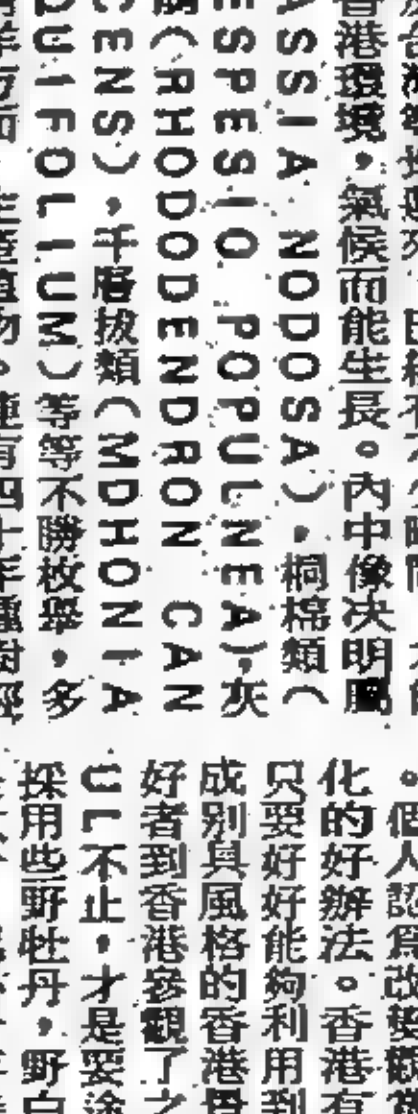 香港環境，氣候而能生長。內中像決明屬
ASSIA NODOSA)，桐棉類(
ESPESIO POPULNEA)，灰
(RHODODENDRON CAN
CENS)，千層拔類(MDHONIA
QUIFOLIUM)等等不勝枚舉，多
。個人認爲改
化的好辦法。香港有
只要好好能夠利用到
成別具風格的香港
好者到香港參觀了之
UL不止，才是要
採用些野牡丹，野白